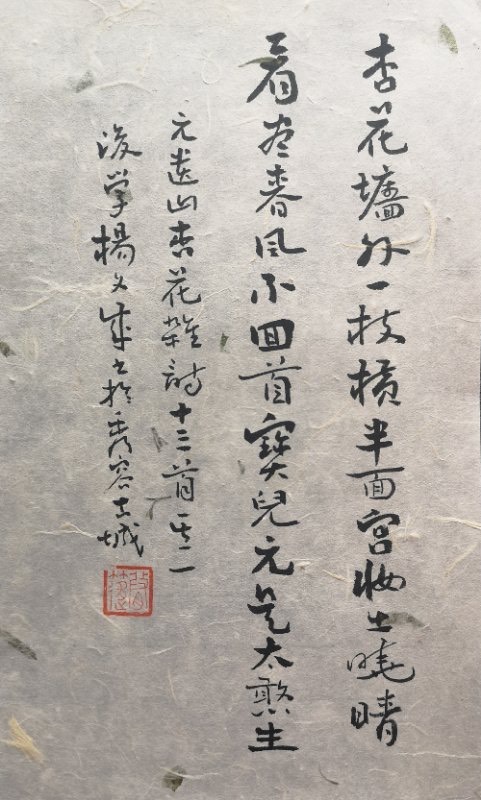 杏花墻外一枝横半面宫妝出曉晴
看盡春風不回首寳兒元是太憨生
元遗山杏花雜詩十三首其二
後学楊文成書於秀容古城